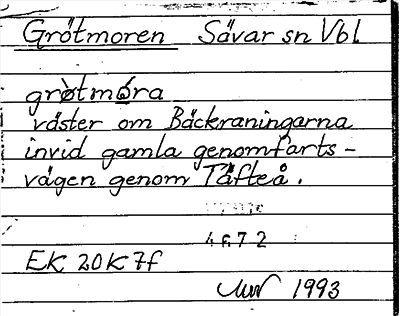 Grötmoren Sävar sn Vbl
grö̀tmóra
väster om Bäckraningarna
invid gamla genomfarts-
vägen genom Täfteå.
4672
EK 20K7f
1993